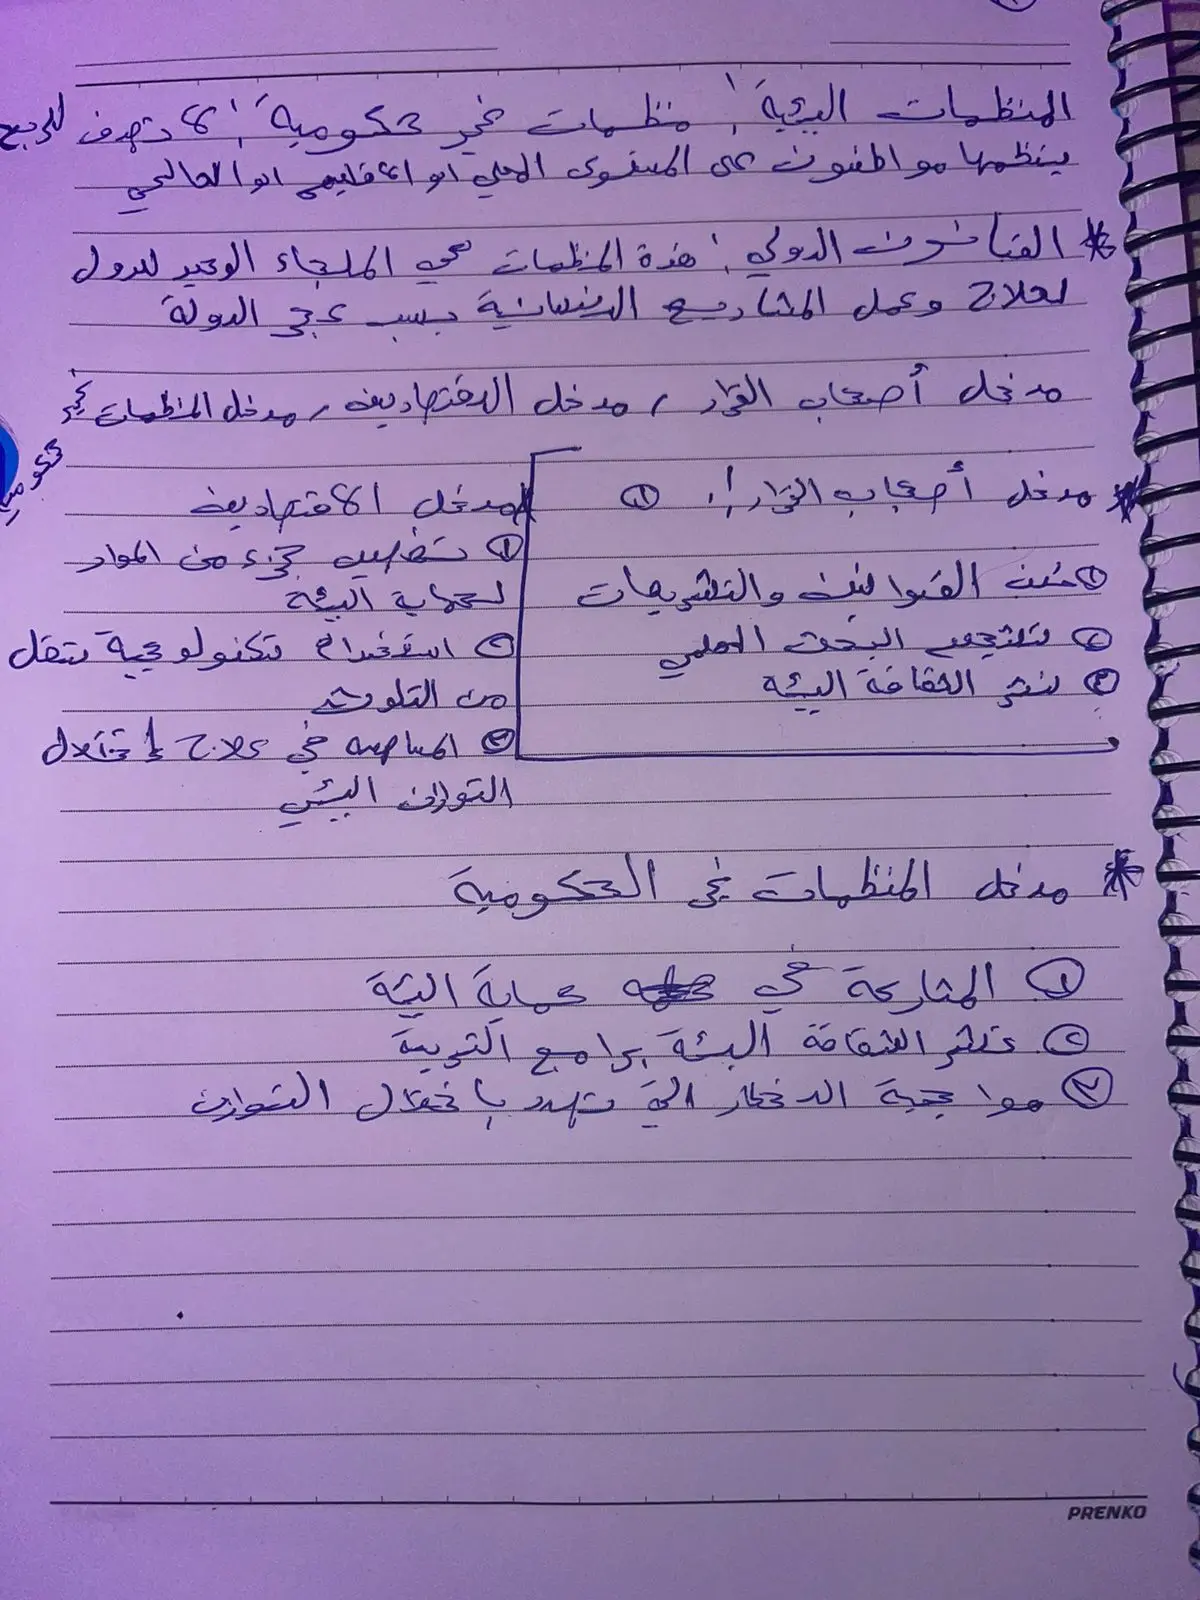 المنظمات البيئية: منظمات غير حكومية، لا تهدف للربح
ينظمها مواطنون على المستوى المحلي او الاقليمي او العالمي
* القانون الدولي: هذة المنظمات هي الملجاء الوحيد للدول
لعلاج وعمل المشاريع الانسانية بسبب عجز الدولة
مدخل أصحاب القرار، مدخل الاقتصاديين، مدخل المنظمات غير
حكومية
* مدخل أصحاب القرار: ①
① سن القوانين والتشريعات
② تشجيع البحث العلمي
③ نشر الثقافة البيئه
* مدخل الاقتصاديين
① تخصيص جزء من المواد
لحماية البيئة
② استخدام تكنولوجية تتقل
من التلوث
③ المساهمه في علاج إختلال
التوازن البيئي
* مدخل المنظمات غير الحكومية
① المشاركة في حماية البيئة
② نشر الثقافة البيئة برامج التربية
③ مواجهة الاخطار التي تهدد بإختلال التوازن
PRENKO